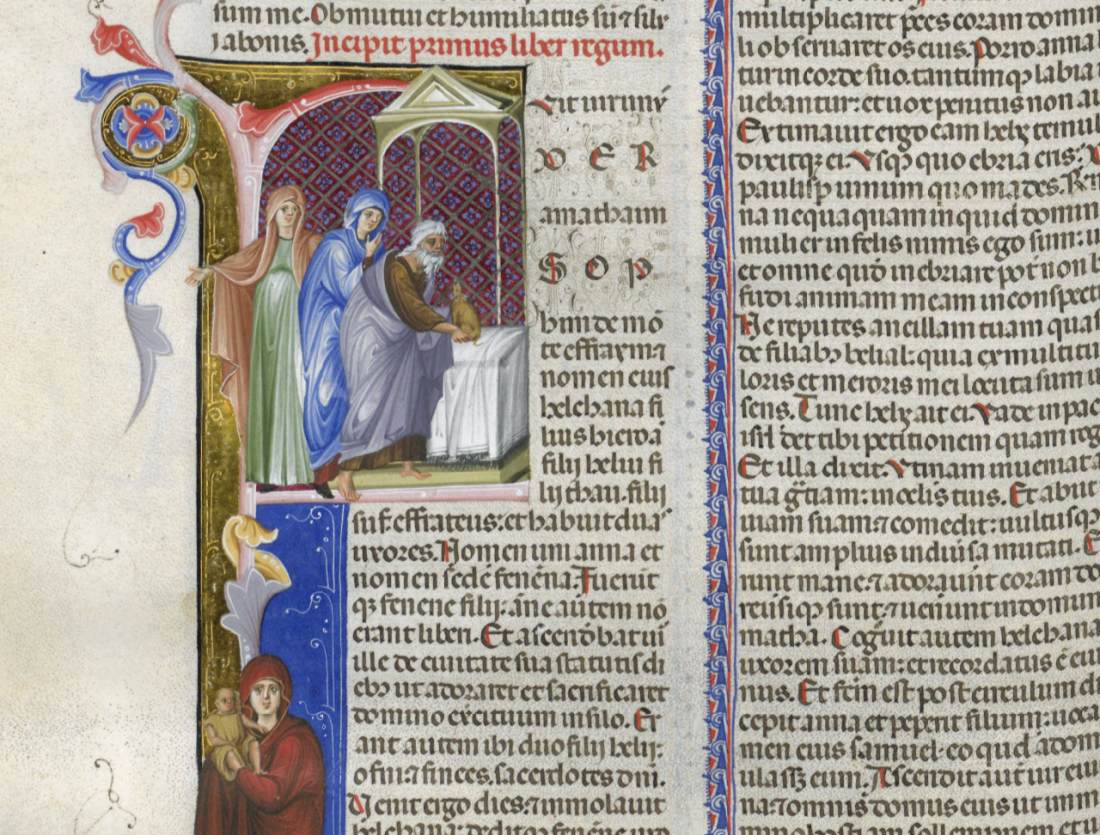 sum me. Obmutui et humiliatus sū ⁊ silu
a bonis. Incipit primus liber regum.
Fuit uir unus
D E R
amathaim
S O P
him de mō
te effraym ⁊
nomen eius
helchana fi
lius hieroā
filij heliu fi
lij thau. filij
suf effrateus: et habuit duas
uxores. Nomen uni anna et
nomen secūde fenēna. Fuerūt
q; fenene filij: anne autem nō
erant liberi. Et ascendebat uir
ille de ciuitate sua statutis di
ebus ut adoraret et sacrificaret
domino exercituum in silo. Er
ant autem ibi duo filij hely:
ofni ⁊ finees. sacerdotes dni.
Uenit ergo dies: ⁊ immolauit
helchana: deditq; fenene uxo
multiplicaret preces coram domin
li obseruaret os eius. Porro anna l
tur in corde suo. tantumq; labia
uebantur: et uox penitus non au
Extimauit ergo eam hely temul
dixitq; ei. Usq; quo ebria eris:
paulisp uinum quo mades. Rn
na nequaquam inquid domin
mulier infelix nimis ego sum: u
et omne quod inebriare pot non b
fudi animam meam in conspect
Ne reputes ancillam tuam quas
de filiabus belial: quia ex multitu
loris et meroris mei locuta sum u
sens. Tunc hely ait ei. Uade in pac
isrl det tibi petitionem quam rog
Et illa dixit. Utinam inueniat a
tua gr̄tiam: in oculis tuis. Et abiit
uiam suam: ⁊ comedit: uultusq;
sunt amplius in diuersa mutati. E
runt mane: ⁊ adorauerunt coram do
reuersiq; sunt: ⁊ uenerunt in domum
matha. Cognouit autem helchana
uxorem suam: et recordatus ē eiu
nus. Et factum est post circulum di
cepit anna et peperit filium: uoca
men eius samuel. eo quod a dom
ulasset eum. Ascendit aut uir eiu
na: ⁊ omnis domus eius ut imm